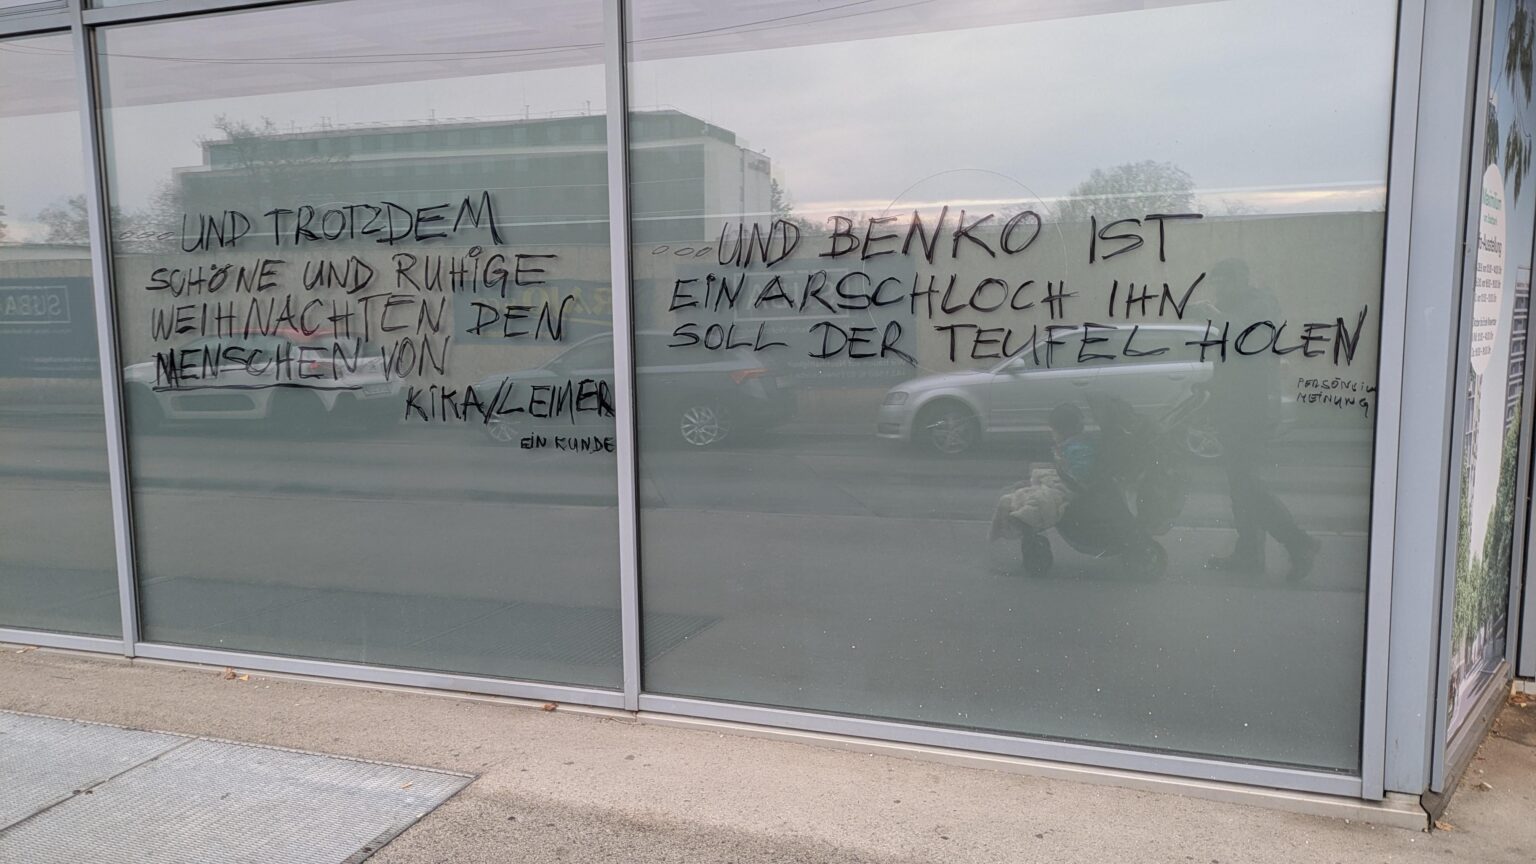 ...UND TROTZDEM
SCHÖNE UND RUHIGE
WEIHNACHTEN DEN
MENSCHEN VON
KIKA/LEINER
EIN KUNDE
...UND BENKO IST
EIN ARSCHLOCH IHN
SOLL DER TEUFEL HOLEN
MEINUNG